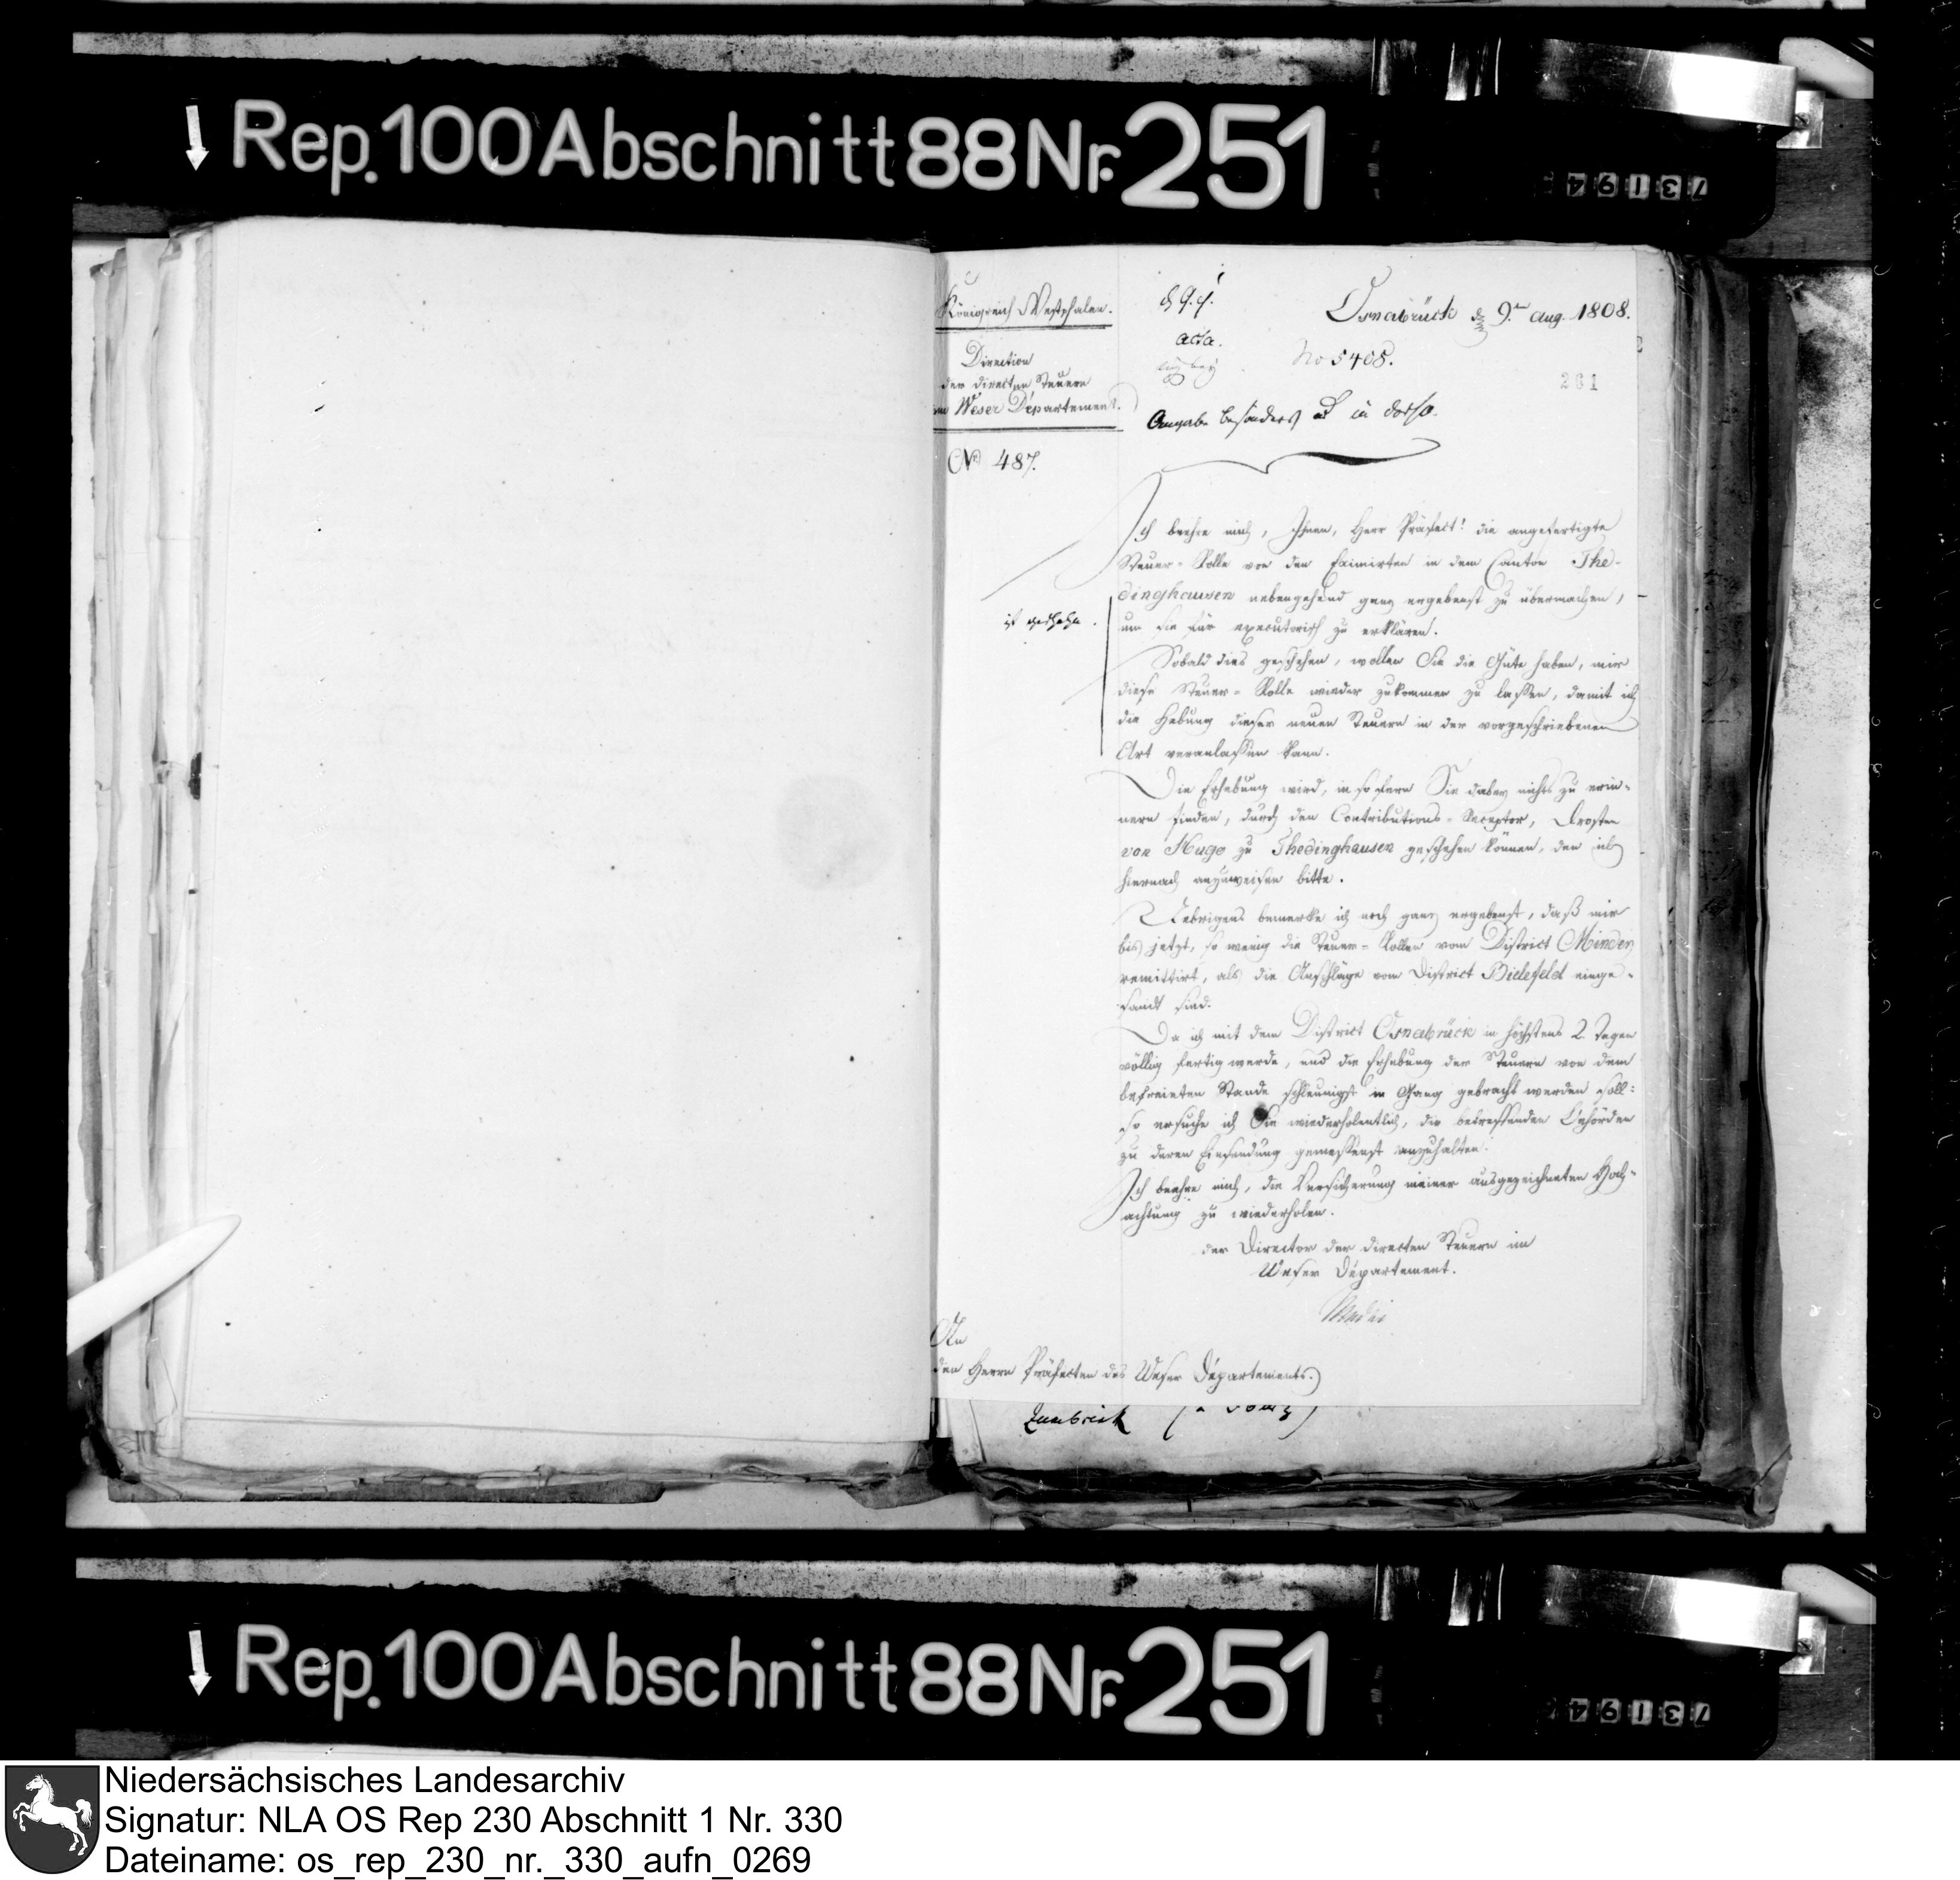 Rep. 100 Abschnitt 88 Nr. 251
Königreich Westphalen.
Direction
der directen Steuern
im Weser Departement.
No 487.
acta.
Osnabrück d 9ten aug. 1808.
No 5408.
261
besonders in dorso.
Ich beehre mich, Ihnen, Herr Präfect! die angefertigte
Steuer-Rolle von den Eximirten in dem Canton The-
dinghausen nebengehend ganz ergebenst zu übermachen,
um sie für executorisch zu erklären.
ist geschehn.
Sobald dies geschehen, wollen Sie die Güte haben, mir
diese Steuer-Rolle wieder zukommen zu lassen, damit ich
die Hebung dieser neuen Steuern in der vorgeschriebenen
Art veranlassen kann.
Die Erhebung wird, in so fern Sie dabey nichts zu erin-
nern finden, durch den Contributions-Receptor, Drosten
von Hugo zu Thedinghausen geschehen können, den ich
hiernach anzuweisen bitte.
Uebrigens bemerke ich noch ganz ergebenst, daß mir
bis jetzt, so wenig die Steuer-Rollen vom District Minden
remittirt, als die Anschläge vom District Bielefeld einge-
sandt sind.
Da ich mit dem District Osnabrück in höchstens 2 Tagen
völlig fertig werde, und die Erhebung der Steuern von dem
befreieten Stande schleunigst in Gang gebracht werden soll:
so ersuche ich Sie wiederholentlich, die betreffenden Behörden
zu deren Einsendung gemessenst anzuhalten.
Ich beehre mich, die Versicherung meiner ausgezeichneten Hoch-
achtung zu wiederholen.
der Director der directen Steuern im
Weser Departement.
An
den Herrn Präfecten des Weser Departements.
Rep. 100 Abschnitt 88 Nr. 251
Niedersächsisches Landesarchiv
Signatur: NLA OS Rep 230 Abschnitt 1 Nr. 330
Dateiname: os_rep_230_nr._330_aufn_0269